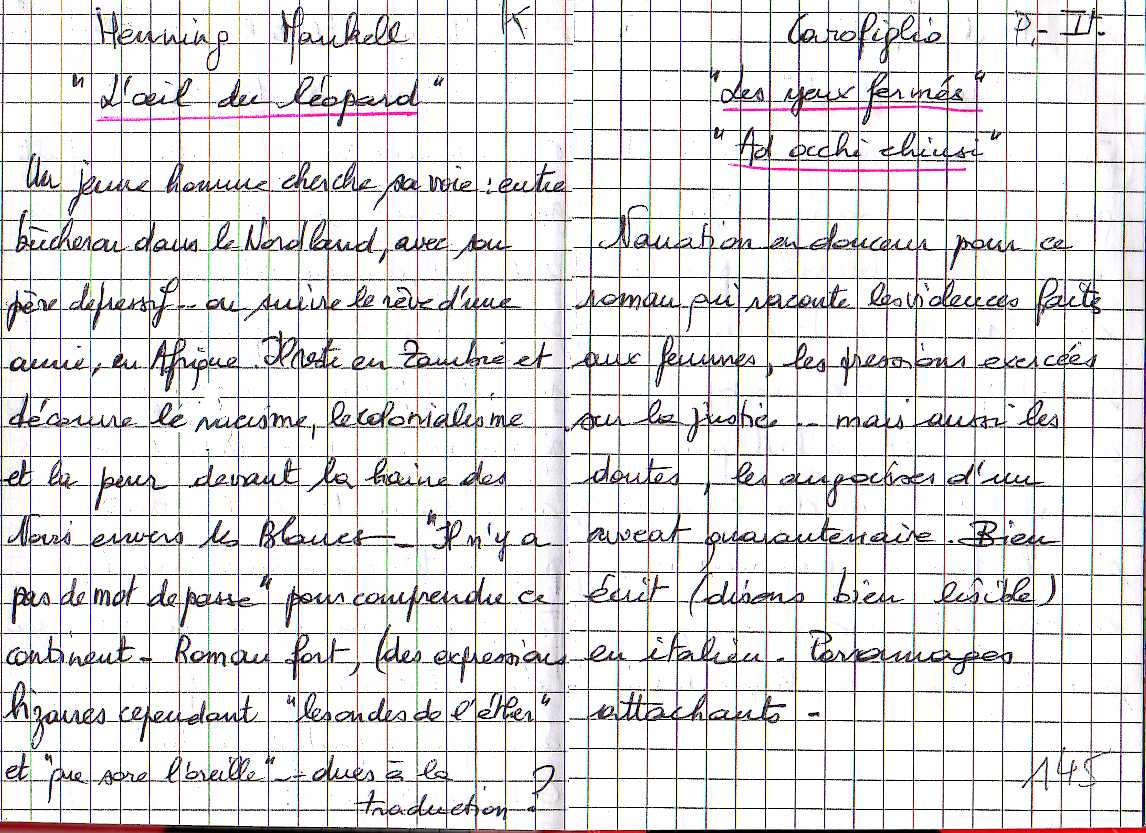 Henning Mankell K
"L'œil du léopard"
Un jeune homme cherche sa voie : entre
bûcheron dans le Nordland, avec son
père depressif -- ou suivre le rêve d'une
amie, en Afrique. Il reste en Zambie et
découvre le racisme, le colonialisme
et la peur devant la haine des
Noirs envers les Blancs - "Il n'y a
pas de mot de passe" pour comprendre ce
continent - Roman fort, (des expressions
bizarres cependant "les ondes de l'éther"
et "que sore l'oreille" -- dues à la
traduction ?
Carofiglio P.- It.
"Les yeux fermés"
"Ad occhi chiusi"
Narration en douceur pour ce
roman qui raconte les violences faites
aux femmes, les pressions exercées
sur la justice -- mais aussi les
doutes, les angoisses d'un
avocat quarantenaire. Bien
écrit (disons bien lisible)
en italien - Personnages
attachants -
145